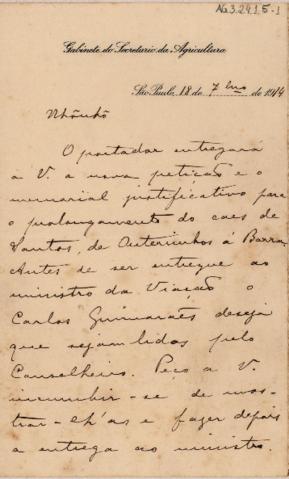 Nº 3.24 1,5-1
Gabinete do Secretario da Agricultura
São Paulo, 18 de 7bro de 1914
Nhônhô
O portador entregará
a V. a nova petição e o
memorial justificativo para
o prolongamento do caes de
Santos, de Outeirinhos á Barra.
Antes de ser entregue ao
ministro da Viação o
Carlos Guimarães deseja
que sejam lidos pelo
Conselheiro. Peço a V.
incumbir-se de mos-
trar-lh'as e fazer depois
a entrega ao ministro.